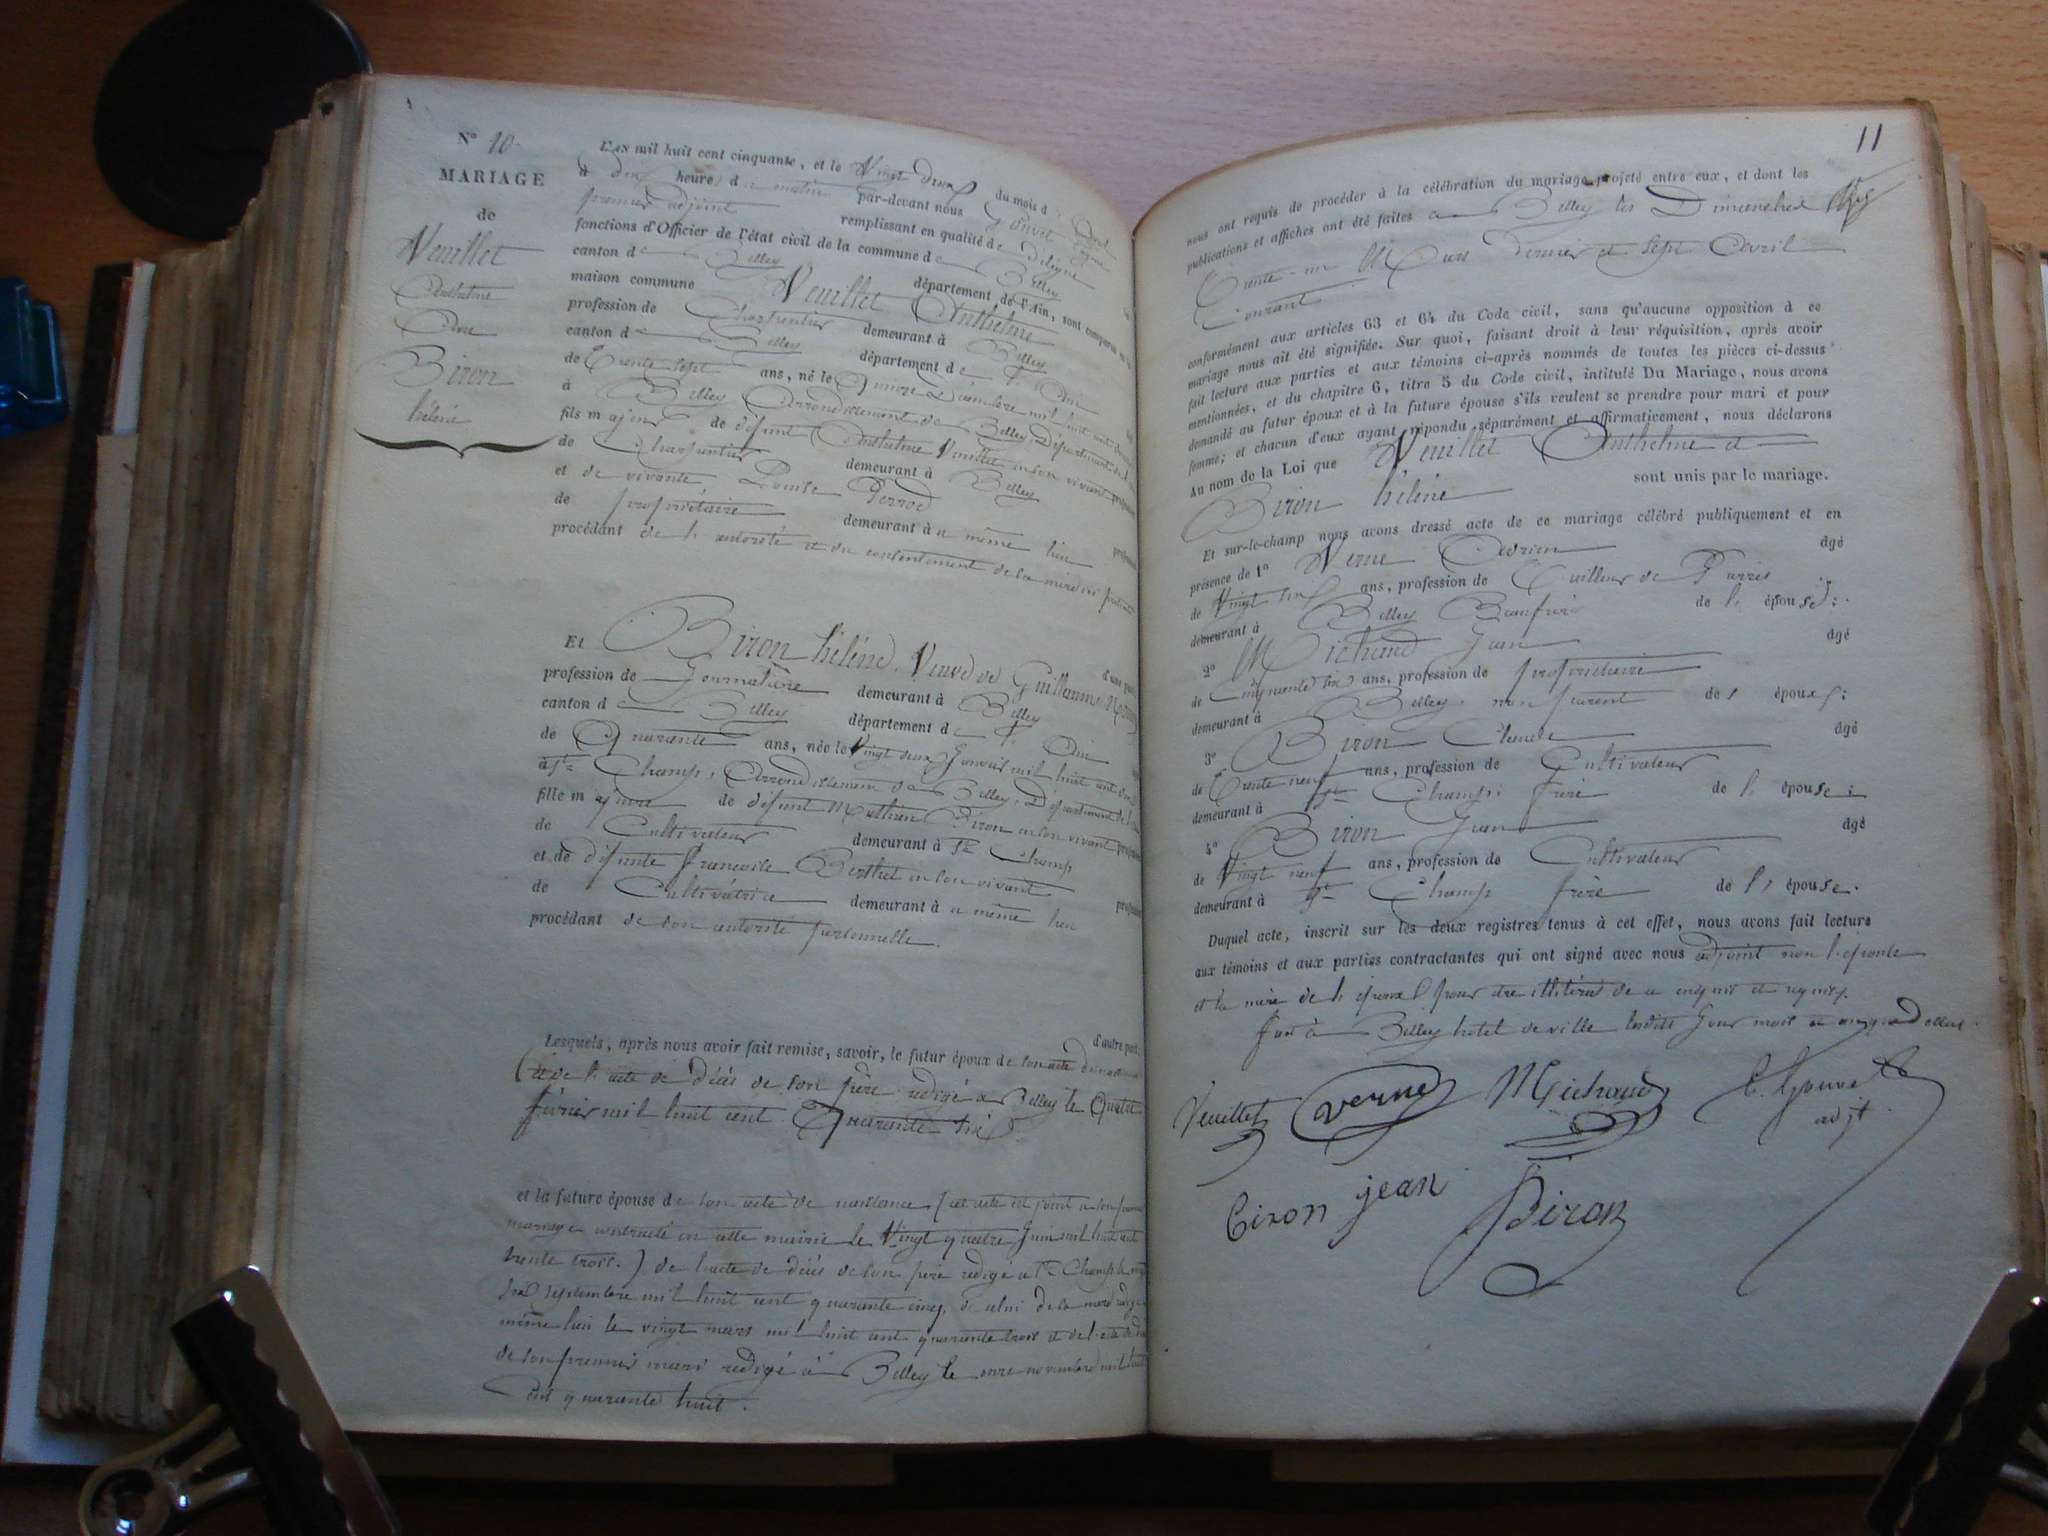 N° 10
MARIAGE
de
Veuillet
Anthelme
Avec
Biron
hélène
L'AN mil huit cent cinquante, et le Vingt deux du mois d'Avril
à dix heures du matin par-devant nous Gouvet
premier adjoint remplissant en qualité de délégué
fonctions d'Officier de l'état civil de la commune de Belley
canton de Belley département de l'Ain, sont comparus en la
maison commune Veuillet Anthelme
profession de Charpentier demeurant à Belley
canton de Belley département de l'Ain
de Trente sept ans, né le Quinze Décembre mil huit cent douze
à Belley Arrondissement de Belley, Département de l'Ain
fils majeur de défunt Anthelme Veuillet en son vivant profession
de Charpentier demeurant à Belley
et de vivante Louise Perrod profession
de propriétaire demeurant au même lieu
procédant de l'autorité et du consentement de sa mère ici présente
d'une part.
Et Biron hélène, Veuve de Guillaume
profession de Journalière demeurant à Belley
canton de Belley département de l'Ain
de Quarante ans, née le Vingt deux Janvier mil huit cent dix
à St Champ, Arrondissement de Belley, Département de l'Ain
fille majeure de défunt Mathieu Biron en son vivant profession
de Cultivateur demeurant à St Champ
et de défunte françoise Berthet en son vivant profession
de Cultivatrice demeurant au même lieu
procédant de son autorité personnelle.
d'autre part.
Lesquels, après nous avoir fait remise, savoir, le futur époux de son acte de naissance
et de l'acte de décès de son père rédigé à Belley le Quatre
février mil huit cent Quarante six
et la future épouse de son acte de naissance (cet acte est joint à son premier
mariage contracté en cette mairie le Vingt quatre Juin mil huit cent
trente trois.) de l'acte de décès de son père rédigé à St Champ le vingt
six septembre mil huit cent quarante cinq, de celui de sa mère rédigé
même lieu le vingt mars mil huit cent quarante trois et de l'acte de décès
de son premier mari rédigé à Belley le onze novembre mil huit
cent quarante huit.
11
nous ont requis de procéder à la célébration du mariage projeté entre eux, et dont les
publications et affiches ont été faites à Belley les Dimanches
Trente un Mars dernier et sept Avril
Courant
conformément aux articles 63 et 64 du Code civil, sans qu'aucune opposition à ce
mariage nous ait été signifiée. Sur quoi, faisant droit à leur réquisition, après avoir
fait lecture aux parties et aux témoins ci-après nommés de toutes les pièces ci-dessus
mentionnées, et du chapitre 6, titre 5 du Code civil, intitulé Du Mariage, nous avons
demandé au futur époux et à la future épouse s'ils veulent se prendre pour mari et pour
femme; et chacun d'eux ayant répondu séparément et affirmativement, nous déclarons
Au nom de la Loi que Veuillet Anthelme et
Biron hélène sont unis par le mariage.
Et sur-le-champ nous avons dressé acte de ce mariage célébré publiquement et en
présence de 1° Verne Adrien âgé
de Vingt six ans, profession de Tailleur de Pierres
demeurant à Belley Beaufrère de l'épouse;
2° Michaud Jean âgé
de Cinquante six ans, profession de propriétaire
demeurant à Belley. non parent de l'époux;
3° Biron Claude âgé
de Trente neuf ans, profession de Cultivateur
demeurant à St Champ; frère de l'épouse;
4° Biron Jean âgé
de Vingt neuf ans, profession de Cultivateur
demeurant à St Champ frère de l'épouse.
Duquel acte, inscrit sur les deux registres tenus à cet effet, nous avons fait lecture
aux témoins et aux parties contractantes qui ont signé avec nous adjoint non l'épouse
et la mère de l'époux pour être illitérés de ce enquis et requis.
fait à Belley hôtel de ville lesdits Jour mois et an que dessus.
Veuillet Verne Michaud C. Gouvet
adjt
Biron jean Biron